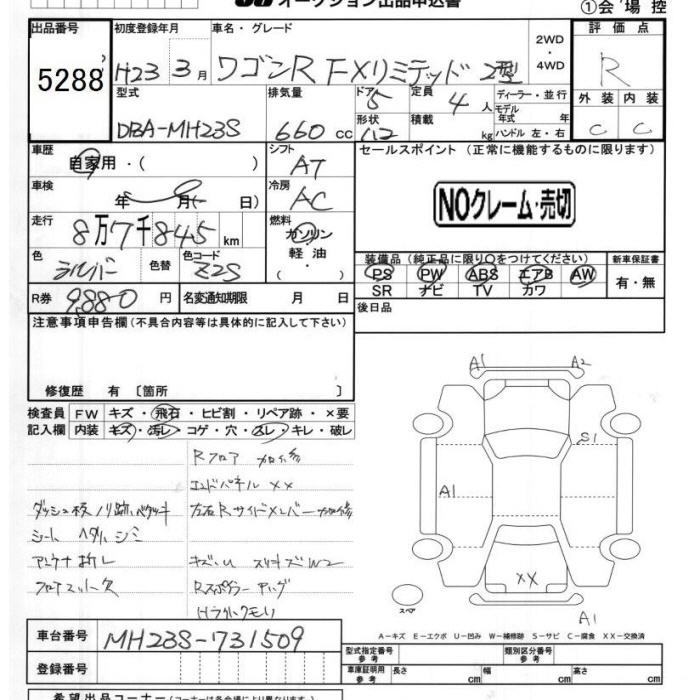 オークション出品申込書
①会場控
出品番号 5288
初度登録年月 H23 3月
車名・グレード ワゴンR FXリミテッド 2型
2WD・4WD
評価点 R
外装 C 内装 C
型式 DBA-MH23S
排気量 660cc
ドア 5 形状
定員 4人 積載 kg
ディーラー・並行
モデル年式 年
ハンドル 左・右
車歴 自家用・( )
シフト AT
セールスポイント (正常に機能するものに限ります)
車検 年 月(- 日)
冷房 AC
NOクレーム・売切
走行 8万7千845km
燃料 ガソリン 軽油 ・( )
色 シルバー 色替 色コード Z2S
装備品(純正品に限り〇をつけてください) 新車保証書
PS PW ABS エアB AW 有・無
SR ナビ TV カワ
R券 9,880円 名変通知期限 月 日
後日品
注意事項申告欄(不具合内容等は具体的に記入して下さい)
修復歴 有 〔箇所 〕
検査員 FW キズ・飛石・ヒビ割・リペア跡・×要
記入欄 内装 キズ・汚レ・コゲ・穴・スレ・キレ・破レ
Rフロア 加修
エンドパネル ××
ダッシュ板
左右Rサイドメンバー加修
シート ヘタリ シミ
アンテナ 折レ
キズ・U スリキズ W2
フロアマット欠
Rスポイラー
Hライトクモリ
A1 A2
S1
A1
××
スペア
A1
A−キズ E−エクボ U−凹み W−補修跡 S−サビ C−腐食 XX−交換済
車台番号 MH23S-731509
登録番号
型式指定番号 参考 類別区分番号 参考
車庫証明用 参考 長さ cm 幅 cm 高さ cm
希望出品コーナー(コーナーは各会場により異なります)